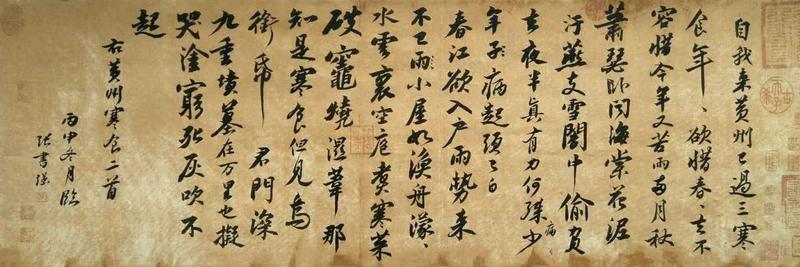 自我来黄州已過三寒
食年、欲惜春、去不
容惜今年又苦雨兩月秋
蕭瑟卧闻海棠花泥
汙燕支雪闇中偷負
去夜半真有力何殊少
病、
年子病起頭已白
春江欲入户雨勢来
不已雨小屋如漁舟濛、
水雲裏空庖煮寒菜
破竈燒濕葦那
知是寒食但見烏
銜帋 君門深
九重墳墓在万里也擬
哭塗窮死灰吹不
起
右黄州寒食二首
丙申冬月臨
张書